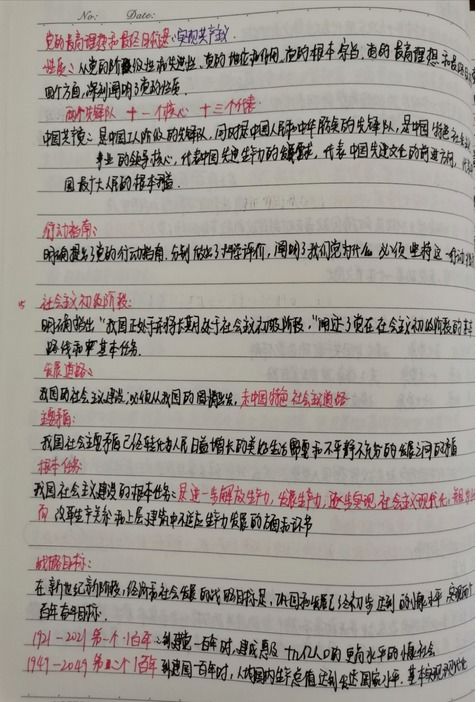 No: Date:
党的最高理想和最终目标是:实现共产主义
性质:从党的阶级性和先进性、党的地位和作用、党的根本宗旨、党的最高理想和最终
四个方面,深刻阐明了党的性质.
两个先锋队 + 一个核心 + 三个代表
中国共产党:是中国工人阶级的先锋队,同时是中国人民和中华民族的先锋队,是中国特色社会主义
事业的领导核心,代表中国先进生产力的发展要求,代表中国先进文化的前进方向,代表
国最广大人民的根本利益.
行动指南:
明确提出了党的行动指南.分别做出了科学评价,阐明了我们党为什么必须坚持这一行动指
社会主义初级阶段:
明确指出"我国正处于并将长期处于社会主义初级阶段,"阐述了党在社会主义初级阶段的基本
路线和基本任务.
发展道路:
我国的社会主义建设,必须从我国的国情出发,走中国特色社会主义道路
主要矛盾:
我国社会主要矛盾已经转化为人民日益增长的美好生活需要和不平衡不充分的发展之间的矛盾
根本任务:
我国社会主义建设的根本任务:是进一步解放生产力,发展生产力,逐步实现社会主义现代化,并且为此
而改革生产关系和上层建筑中不适应生产力发展的方面和环节
战略目标:
在新世纪新阶段,经济和社会发展的战略目标是,巩固和发展已经初步达到的小康水平,实现两个
百年奋斗目标.
1921-2021 第一个100年:到建党一百年时,建成惠及十几亿人口的更高水平的小康社会
1949-2049 第二个100年 到建国一百年时,人均国内生产总值达到中等发达国家水平.基本实现现代化